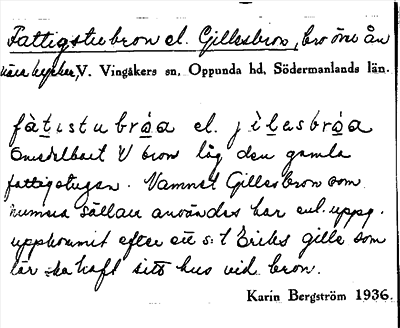 Fattigstubron el. Gillesbron, bro över ån
nära kyrkan, V. Vingåkers sn, Oppunda hd, Södermanlands län.
fàtɩstubróa el. jìlasbróa
Omedelbart V bron låg den gamla
fattigstugan. Namnet Gillesbron som
numera sällan användes har enl. uppg.
uppkommit efter ett s:t Eriks gille som
lär ha haft sitt hus vid bron.
Karin Bergström 1936.